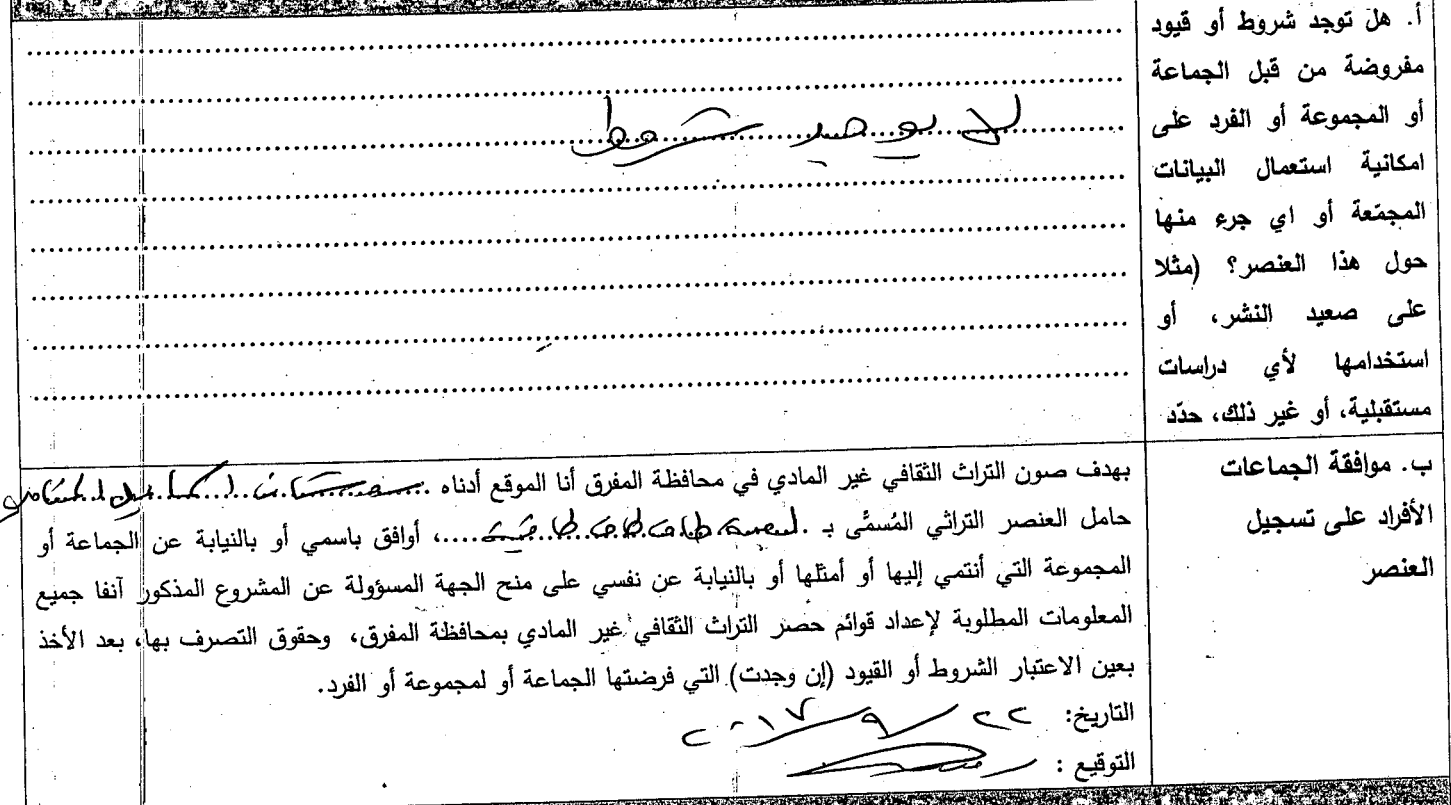 أ. هل توجد شروط أو قيود
مفروضة من قبل الجماعة
أو المجموعة أو الفرد على
امكانية استعمال البيانات
المجمّعة أو اي جرء منها
حول هذا العنصر؟ (مثلا
على صعيد النشر، أو
استخدامها لأي دراسات
مستقبلية، أو غير ذلك، حدّد
لا يوجد شروط
ب. موافقة الجماعات
الأفراد على تسجيل
العنصر
بهدف صون التراث الثقافي غير المادي في محافظة المفرق أنا الموقع أدناه
حامل العنصر التراثي المُسمَّى بـ لعبة طاق طاق طاقية، أوافق باسمي أو بالنيابة عن الجماعة أو
المجموعة التي أنتمي إليها أو أمثلها أو بالنيابة عن نفسي على منح الجهة المسؤولة عن المشروع المذكور آنفا جميع
المعلومات المطلوبة لإعداد قوائم حصر التراث الثقافي غير المادي بمحافظة المفرق، وحقوق التصرف بها، بعد الأخذ
بعين الاعتبار الشروط أو القيود (إن وجدت) التي فرضتها الجماعة أو لمجموعة أو الفرد.
التاريخ: ٢٢/٩/٢٠١٧
التوقيع :